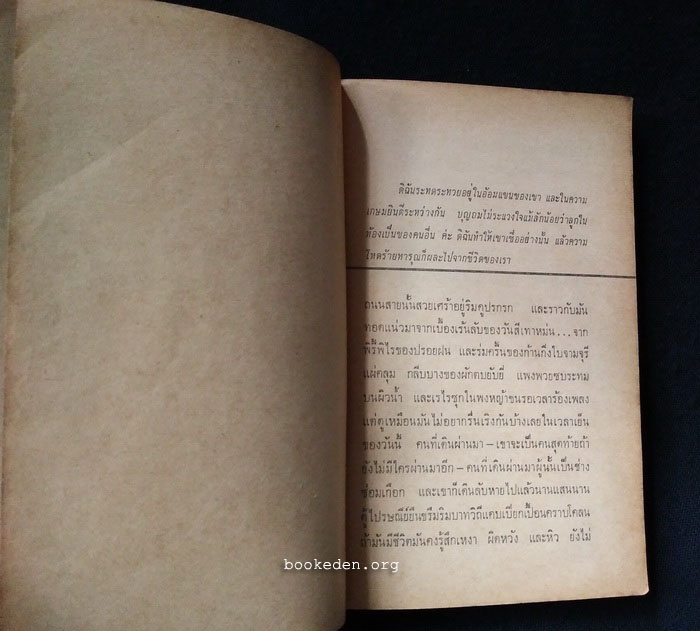 ดิฉันระทดระทวยอยู่ในอ้อมแขนของเขา และในความ
เกษมยินดีระหว่างกัน บุญถมไม่ระแวงใจแม้สักน้อยว่าลูกใน
ท้องเป็นของคนอื่น ค่ะ ดิฉันทำให้เขาเชื่ออย่างนั้น แล้วความ
โหดร้ายทารุณก็ผละไปจากชีวิตของเรา
ถนนสายนั้นสวยเศร้าอยู่ริมคูปรกรก และราวกับมัน
ทอดแน่วมาจากเบื้องเร้นลับของวันสีเทาหม่น...จาก
พิรี้พิไรของปรอยฝน และร่มครึ้มของก้านกิ่งใบจามจุรี
แผ่คลุม กลีบบางของผักตบยับยี่ แพงพวยซบระทม
บนผิวน้ำ และเรไรซุกในพงหญ้าขนรอเวลาร้องเพลง
แต่ดูเหมือนมันไม่อยากรื่นเริงกันบ้างเลยในเวลาเย็น
ของวันนี้ คนที่เดินผ่านมา – เขาจะเป็นคนสุดท้ายถ้า
ยังไม่มีใครผ่านมาอีก – คนที่เดินผ่านมาผู้นั้นเป็นช่าง
ซ่อมเกือก และเขาก็เดินลับหายไปแล้วนานแสนนาน
ตู้ไปรษณีย์ยืนขรึมริมบาทวิถีแคบเปียกเปื้อนคราบโคลน
ถ้ามันมีชีวิตมันคงรู้สึกเหงา ผิดหวัง และหิว ยังไม่
bookeden.org